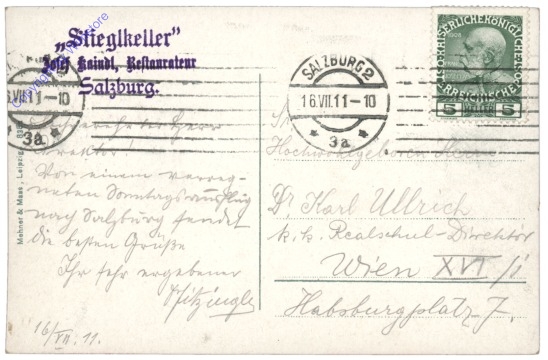 „Stieglkeller"
Josef Kaindl, Restaurateur
Salzburg.
16.VII.11-10
3a
SALZBURG 2
16.VII.11-10
* 3a *
KAISERLICHEKÖNIGLICHE
ÖSTERREICHISCHE
1908
5 5
Mehner & Maas, Leipzig
Herr
Direktor!
Von einem verreg-
neten Sonntagsausflug
nach Salzburg sendet
die besten Grüße
Ihr sehr ergebener
16/VII. 11.
Hochwohlgeboren Herrn
Dr Karl Ullrich
k. k. Realschul-Direktor
Wien XVI/1
Habsburgplatz 7.